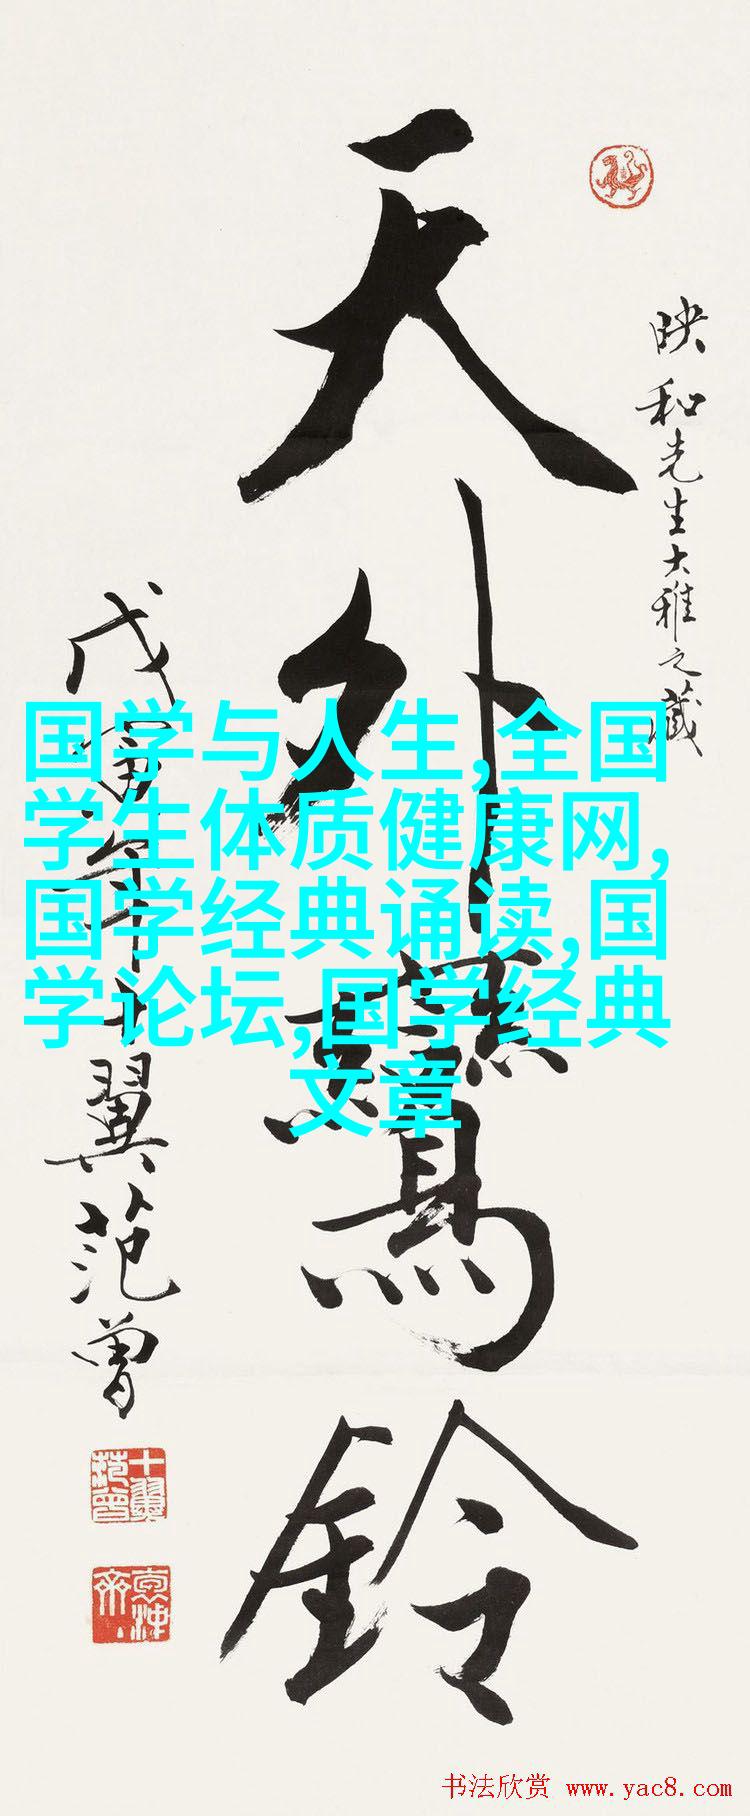 映和先生大雅之藏
天外
鈴
戊寅年十翼范曾
十翼范曾
国学与人生,全国
学生体质健康网,
国学经典诵读,国
学论坛,国学经典
文章
书法欣赏 www.yac8.com